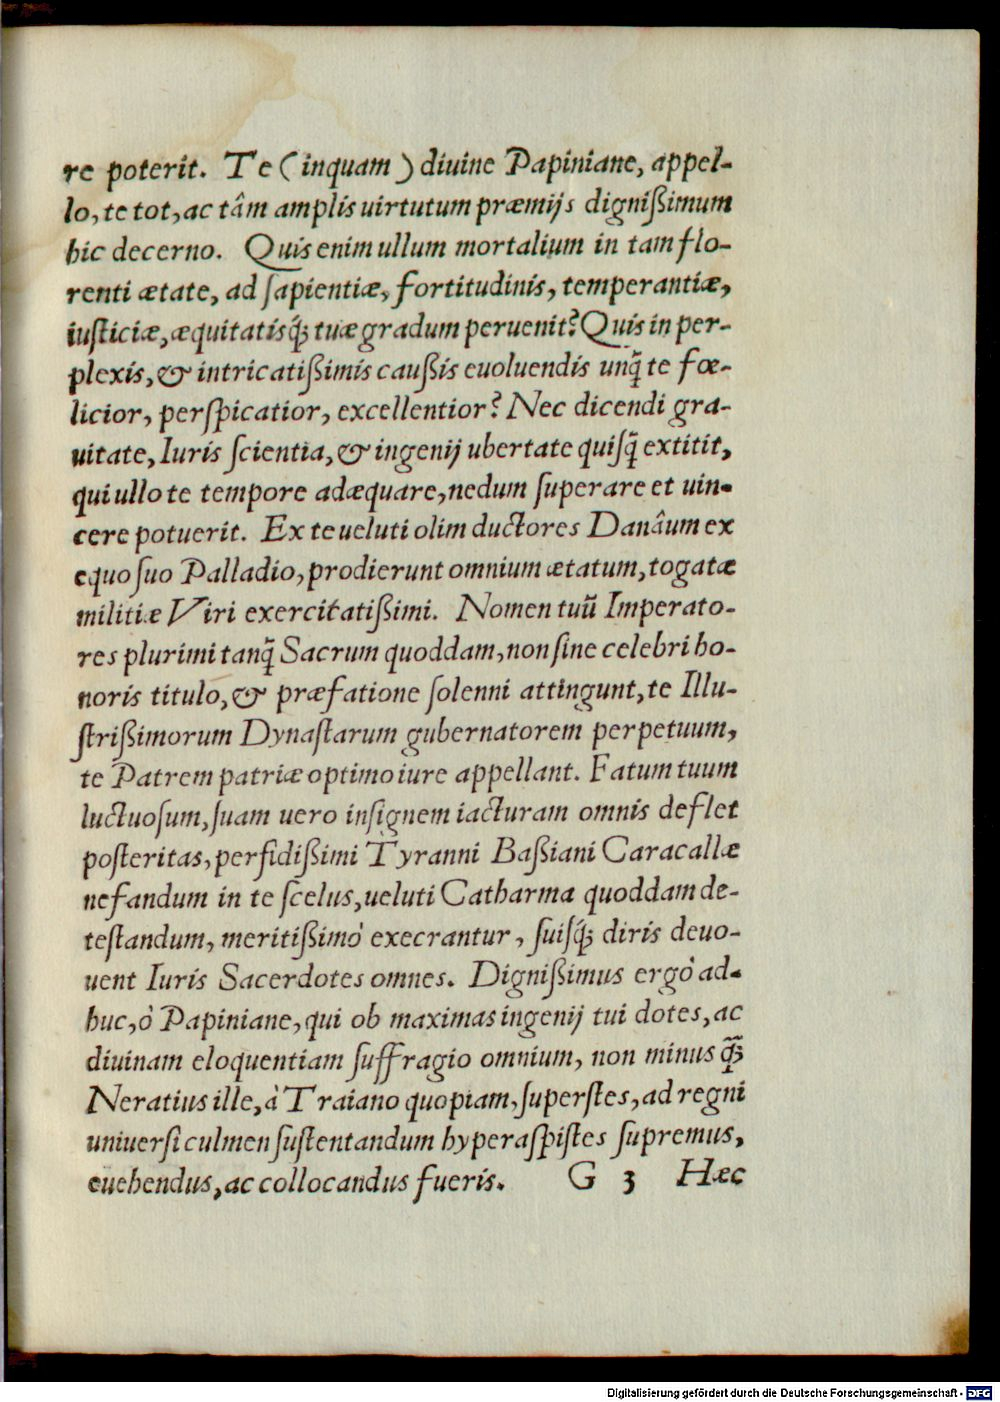 re poterit. Te (inquam) diuine Papiniane, appel-
lo, te tot, ac tâm amplis uirtutum præmijs dignißimum
hic decerno. Quis enim ullum mortalium in tam flo-
renti ætate, ad ſapientiæ, fortitudinis, temperantiæ,
iuſticiæ, æquitatisq́; tuæ gradum peruenit? Quis in per-
plexis, & intricatißimis caußis euoluendis unq̃ te fœ-
licior, perſpicatior, excellentior? Nec dicendi gra-
uitate, Iuris ſcientia, & ingenij ubertate quiſq̃ extitit,
qui ullo te tempore adæquare, nedum ſuperare et uin-
cere potuerit. Ex te ueluti olim ductores Danâum ex
equo ſuo Palladio, prodierunt omnium ætatum, togatæ
militiæ Viri exercitatißimi. Nomen tuũ Imperato-
res plurimi tanq̃ Sacrum quoddam, non ſine celebri ho-
noris titulo, & præfatione ſolenni attingunt, te Illu-
ſtrißimorum Dynaſtarum gubernatorem perpetuum,
te Patrem patriæ optimo iure appellant. Fatum tuum
luctuoſum, ſuam uero inſignem iacturam omnis deflet
poſteritas, perfidißimi Tyranni Baßiani Caracallæ
nefandum in te ſcelus, ueluti Catharma quoddam de-
teſtandum, meritißimò execrantur, ſuiſq́; diris deuo-
uent Iuris Sacerdotes omnes. Dignißimus ergò ad-
huc, ò Papiniane, qui ob maximas ingenij tui dotes, ac
diuinam eloquentiam ſuffragio omnium, non minus q̃;
Neratius ille, à Traiano quopiam, ſuperſtes, ad regni
uniuerſi culmen ſuſtentandum hyperaſpiſtes ſupremus,
euehendus, ac collocandus fueris. G 3 Hæc
Digitalisierung gefördert durch die Deutsche Forschungsgemeinschaft - DFG